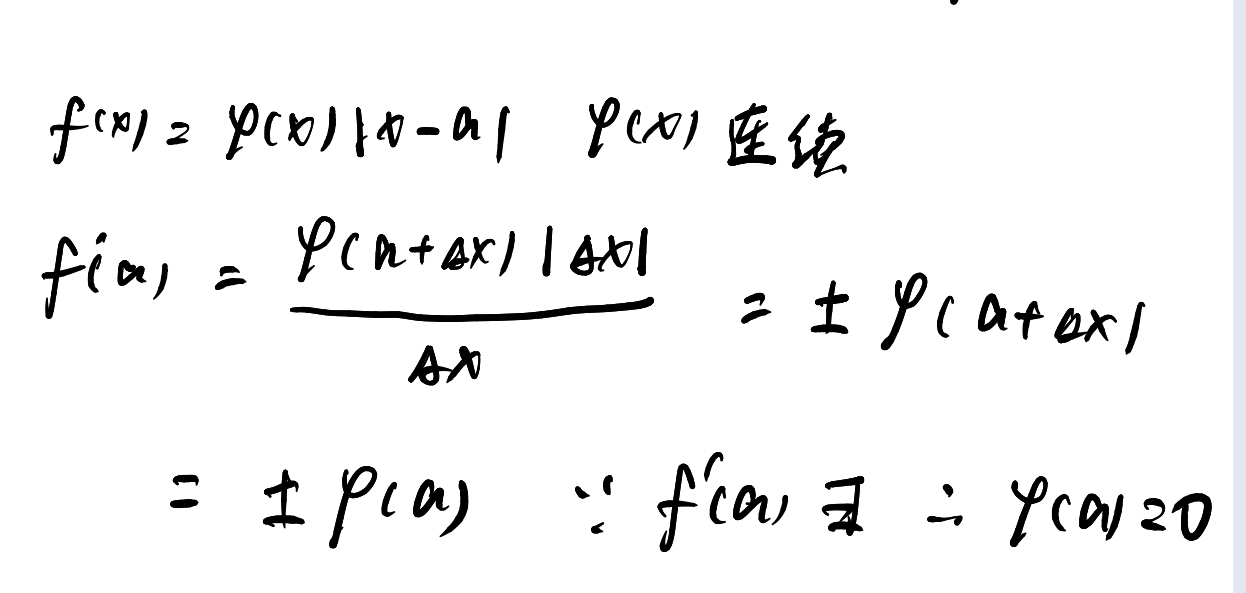 f(x) = φ(x)|x-a| φ(x) 连续
f'(a) = φ(a+Δx)|Δx| / Δx = ± φ(a+Δx)
= ± φ(a) ∵ f'(a) ∃ ∴ φ(a)=0